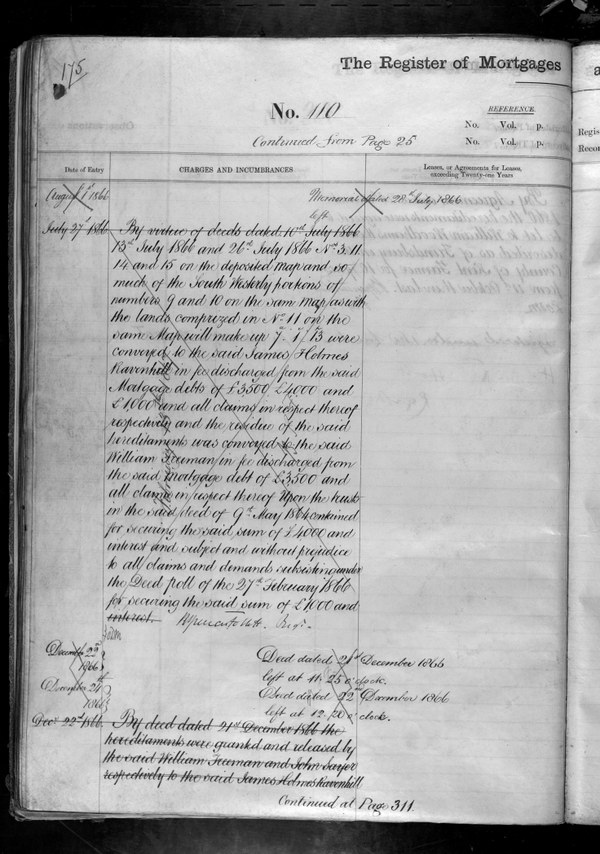 175
The Register of Mortgages
No. 110
REFERENCE.
No. Vol. p.
Continued from Page 25
No. Vol. p.
Date of Entry
CHARGES AND INCUMBRANCES
Leases, or Agreements for Leases,
exceeding Twenty-one Years
August 1st 1866
Memorial dated 28th July 1866
left
July 27th 1866
By virtue of deeds dated 10th July 1866
13th July 1866 and 26th July 1866 Nos 3. 11.
14 and 15 on the deposited Map and so
much of the South Westerly portions of
numbers 9 and 10 on the same Map as with
the lands comprized in No. 11 on the
same Map will make up 7. 1/73 were
conveyed to the said James Holmes
Ravenhill in fee discharged from the said
Mortgage debts of £3500 £4000 and
£1,000 and all claims in respect thereof
respectively and the residue of the said
hereditaments was conveyed to the said
William Freeman in fee discharged from
the said mortgage debt of £3,500 and
all claims in respect thereof Upon the trusts
in the said deed of 9th May 1864 contained
for securing the said sum of £4000 and
interest and subject and without prejudice
to all claims and demands subsisting under
the Deed poll of the 27th February 1866
for securing the said sum of £1000 and
interest.
Regr.
December 22nd
1866
Deed dated 21st December 1866
left at 11. 25 o'clock.
December 24th
1866
Deed dated 22nd December 1866
left at 12. 20 o'clock.
Decr 22nd 1866.
By deed dated 21st December 1866 the
hereditaments were granted and released by
the said William Freeman and John Sayer
respectively to the said James Holmes Ravenhill
Continued at Page 311.
Regis
Recor